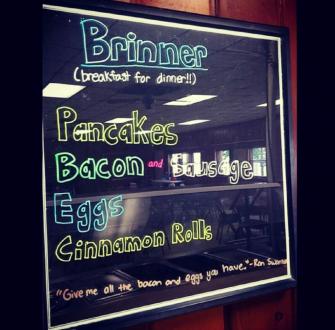 Brinner
(breakfast for dinner!!)
Pancakes
Bacon and Sausage
Eggs
Cinnamon Rolls
"Give me all the bacon and eggs you have."-Ron Swanson